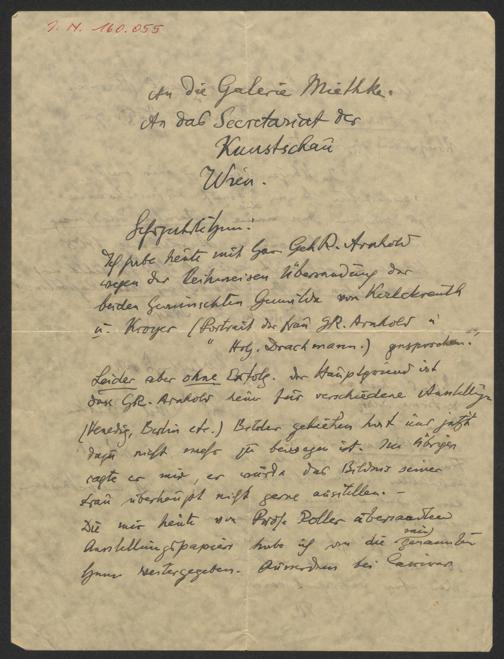 J. N. 160.055
An die Galerie Miethke.
An das Secretariat der
Kunstschau
Wien.
Ich habe heute mit Herr Geh R. Arnhold
wegen der leihweisen Übersendung der
beiden gewünschten Gemälde von Kalckreuth
u. Kroyer (Portrait der Frau GR. Arnhold u
" Holg. Drachmann.) gesprochen.
Leider aber ohne Erfolg. Der Hauptgrund ist
dass GR. Arnhold seine für verschiedene Ausstellungen
(Venedig, Berlin etc.) Bilder geliehen hat und jetzt
dazu nicht mehr zu bewegen ist. Im Übrigen
sagte er mir, er würde das Bildnis seiner
Frau überhaupt nicht gerne ausstellen. –
Die mir heute von Profs. Roller übersandten
Ausstellungspapiere habe ich an die mir genannten
Herrn weitergegeben. Ausserdem bei